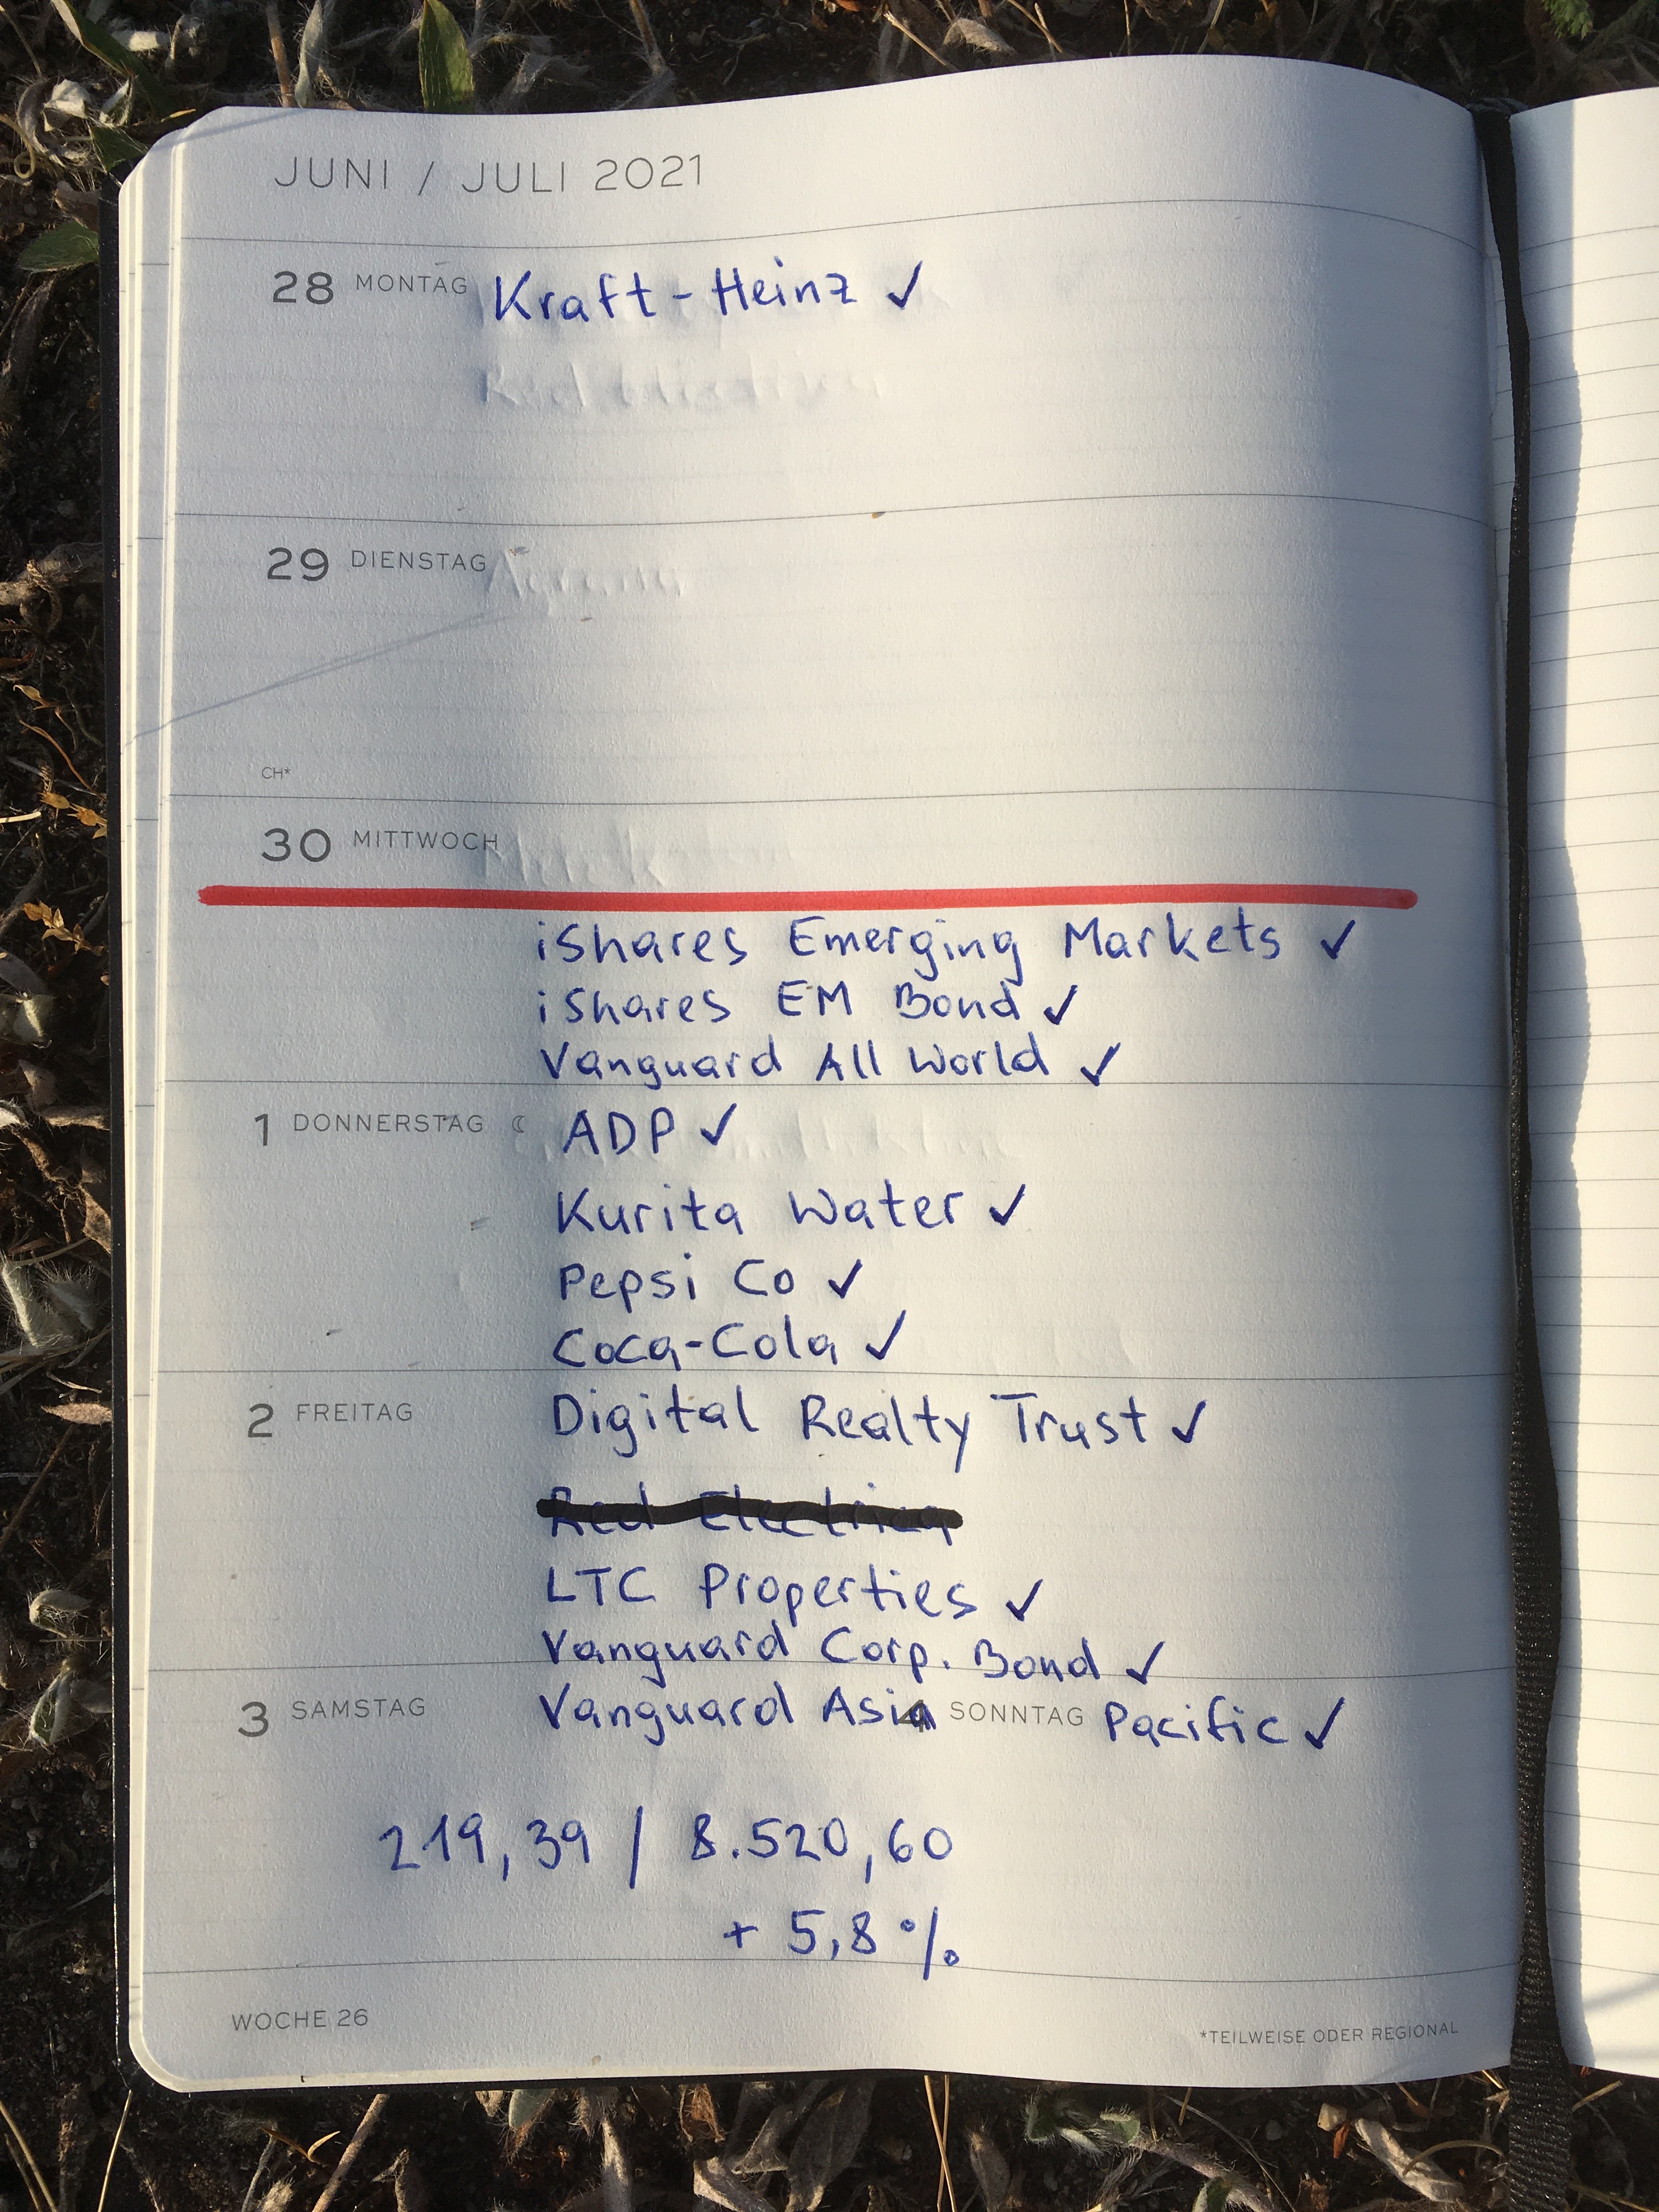 JUNI / JULI 2021
28 MONTAG Kraft-Heinz ✓
29 DIENSTAG
CH*
30 MITTWOCH
iShares Emerging Markets ✓
iShares EM Bond ✓
Vanguard All World ✓
1 DONNERSTAG ☾ ADP ✓
Kurita Water ✓
Pepsi Co ✓
Coca-Cola ✓
2 FREITAG Digital Realty Trust ✓
Red Electrica
LTC Properties ✓
Vanguard Corp. Bond ✓
3 SAMSTAG Vanguard Asia 4 SONNTAG Pacific ✓
219,39 / 8.520,60
+ 5,8 %
WOCHE 26
*TEILWEISE ODER REGIONAL